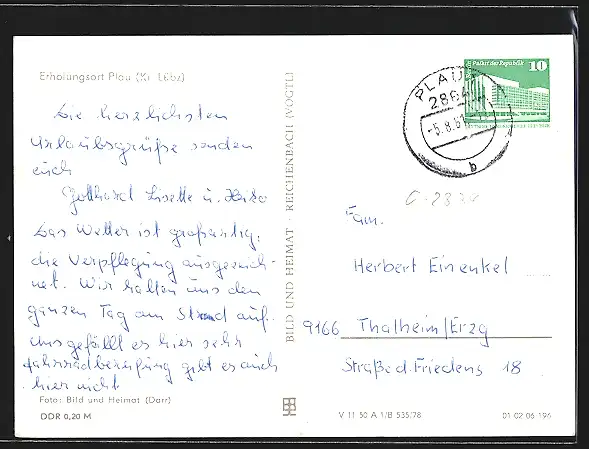 Erholungsort Plau (Kr. Lübz)
Die herzlichsten
Urlaubsgrüße senden
euch
Gotthard Lisette u. Heiko
Das Wetter ist großartig,
die Verpflegung ausgezeich-
net. Wir halten uns den
ganzen Tag am Strand auf.
Uns gefällt es hier sehr
gibt es auch
hier nicht
Foto: Bild und Heimat (Darr)
DDR 0,20 M
BILD UND HEIMAT · REICHENBACH (VOGTL)
Palast der Republik 10
PLAU
286
-5.8.8
b
Fam.
Herbert Einenkel
9166 Thalheim/Erzg
Straße d. Friedens 18
V 11 50 A 1/B 535/78
01 02 06 196